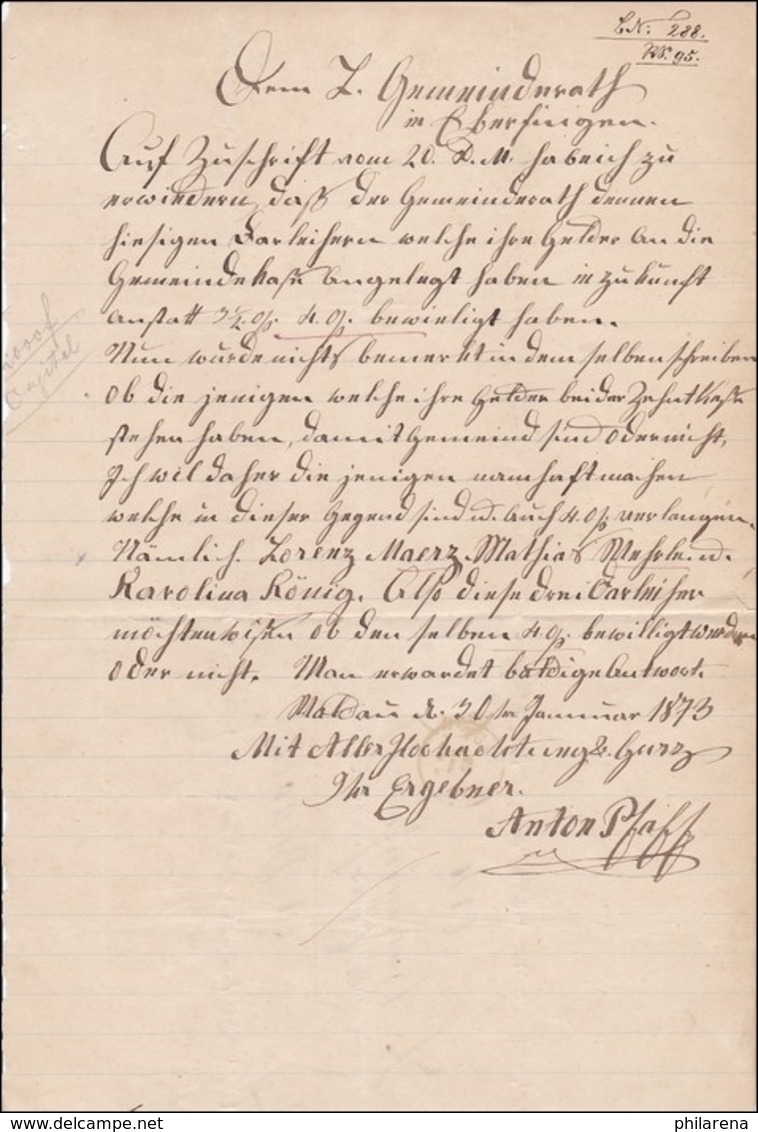 LN: 288.
RS. 95.
Dem L. Gemeinderath
in Eberfingen.
Auf Zuschrift vom 20. d. M. habe ich zu
erwiedern, daß der Gemeinderath dennen
hiesigen Darleihern welche ihre Gelder an die
Gemeindekaße angelegt haben in zukunft
anstatt 3½ % 4 % bewieligt haben.
Nun wurde nichts bemerkt in dem selben schreiben
ob die jenigen welche ihre Gelder bei der Zehntkaße
stehen haben, damit gemeind sind oder nicht,
Ich wil daher die jenigen namhaft machen
welche in dieser Gegend sind u. auch 4 % verlangen.
Nämlich. Lorenz Maerz. Mathias Wehrle u.
Karolina König. Also diese drei Darleiher
möchten wißen ob den selben 4 % bewilligt werden
oder nicht. Man erwardet baldige Antwort.
Waldau d. 30ten Januar 1873
Mit Aller Hochachtung
Ihr Ergebner.
Anton Pfaff
Capital
delcampe.net
philarena